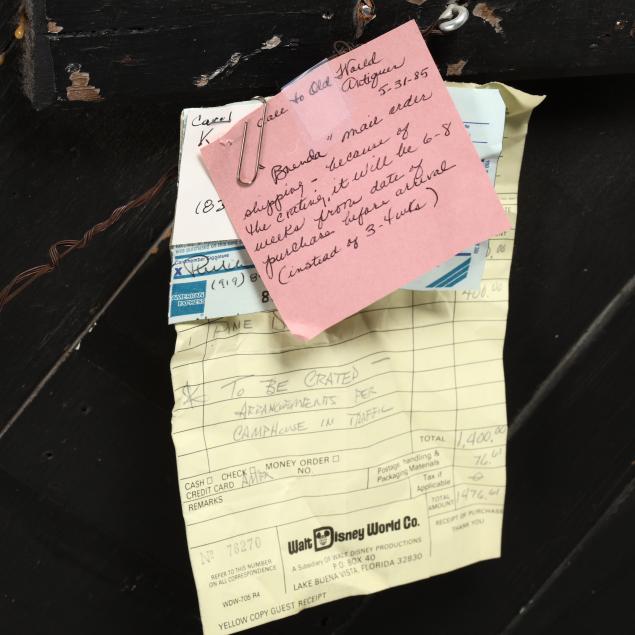 Call to Old World
Antiques
5-31-85
"Brenda" mail order
shipping - because of
the crating, it will be 6-8
weeks from date of
purchase before arrival
(instead of 3-4 wks)
Cardmember Signature
X
(919) 8
AMERICAN
EXPRESS
400.00
1 PINE
* TO BE CRATED -
ARRANGEMENTS PER
CAMPHOUSE IN TRAFFIC
TOTAL 1,400.00
Postage, handling &
Packaging Materials 76.61
Tax if
Applicable
TOTAL
AMOUNT 1476.61
CASH □ CHECK □ MONEY ORDER □
CREDIT CARD AMEX NO.
REMARKS
RECEIPT OF PURCHASE
THANK YOU
No 78270
REFER TO THIS NUMBER
ON ALL CORRESPONDENCE
WDW-705 R4
YELLOW COPY GUEST RECEIPT
Walt Disney World Co.
A Subsidiary Of WALT DISNEY PRODUCTIONS
P.O. BOX 40
LAKE BUENA VISTA, FLORIDA 32830